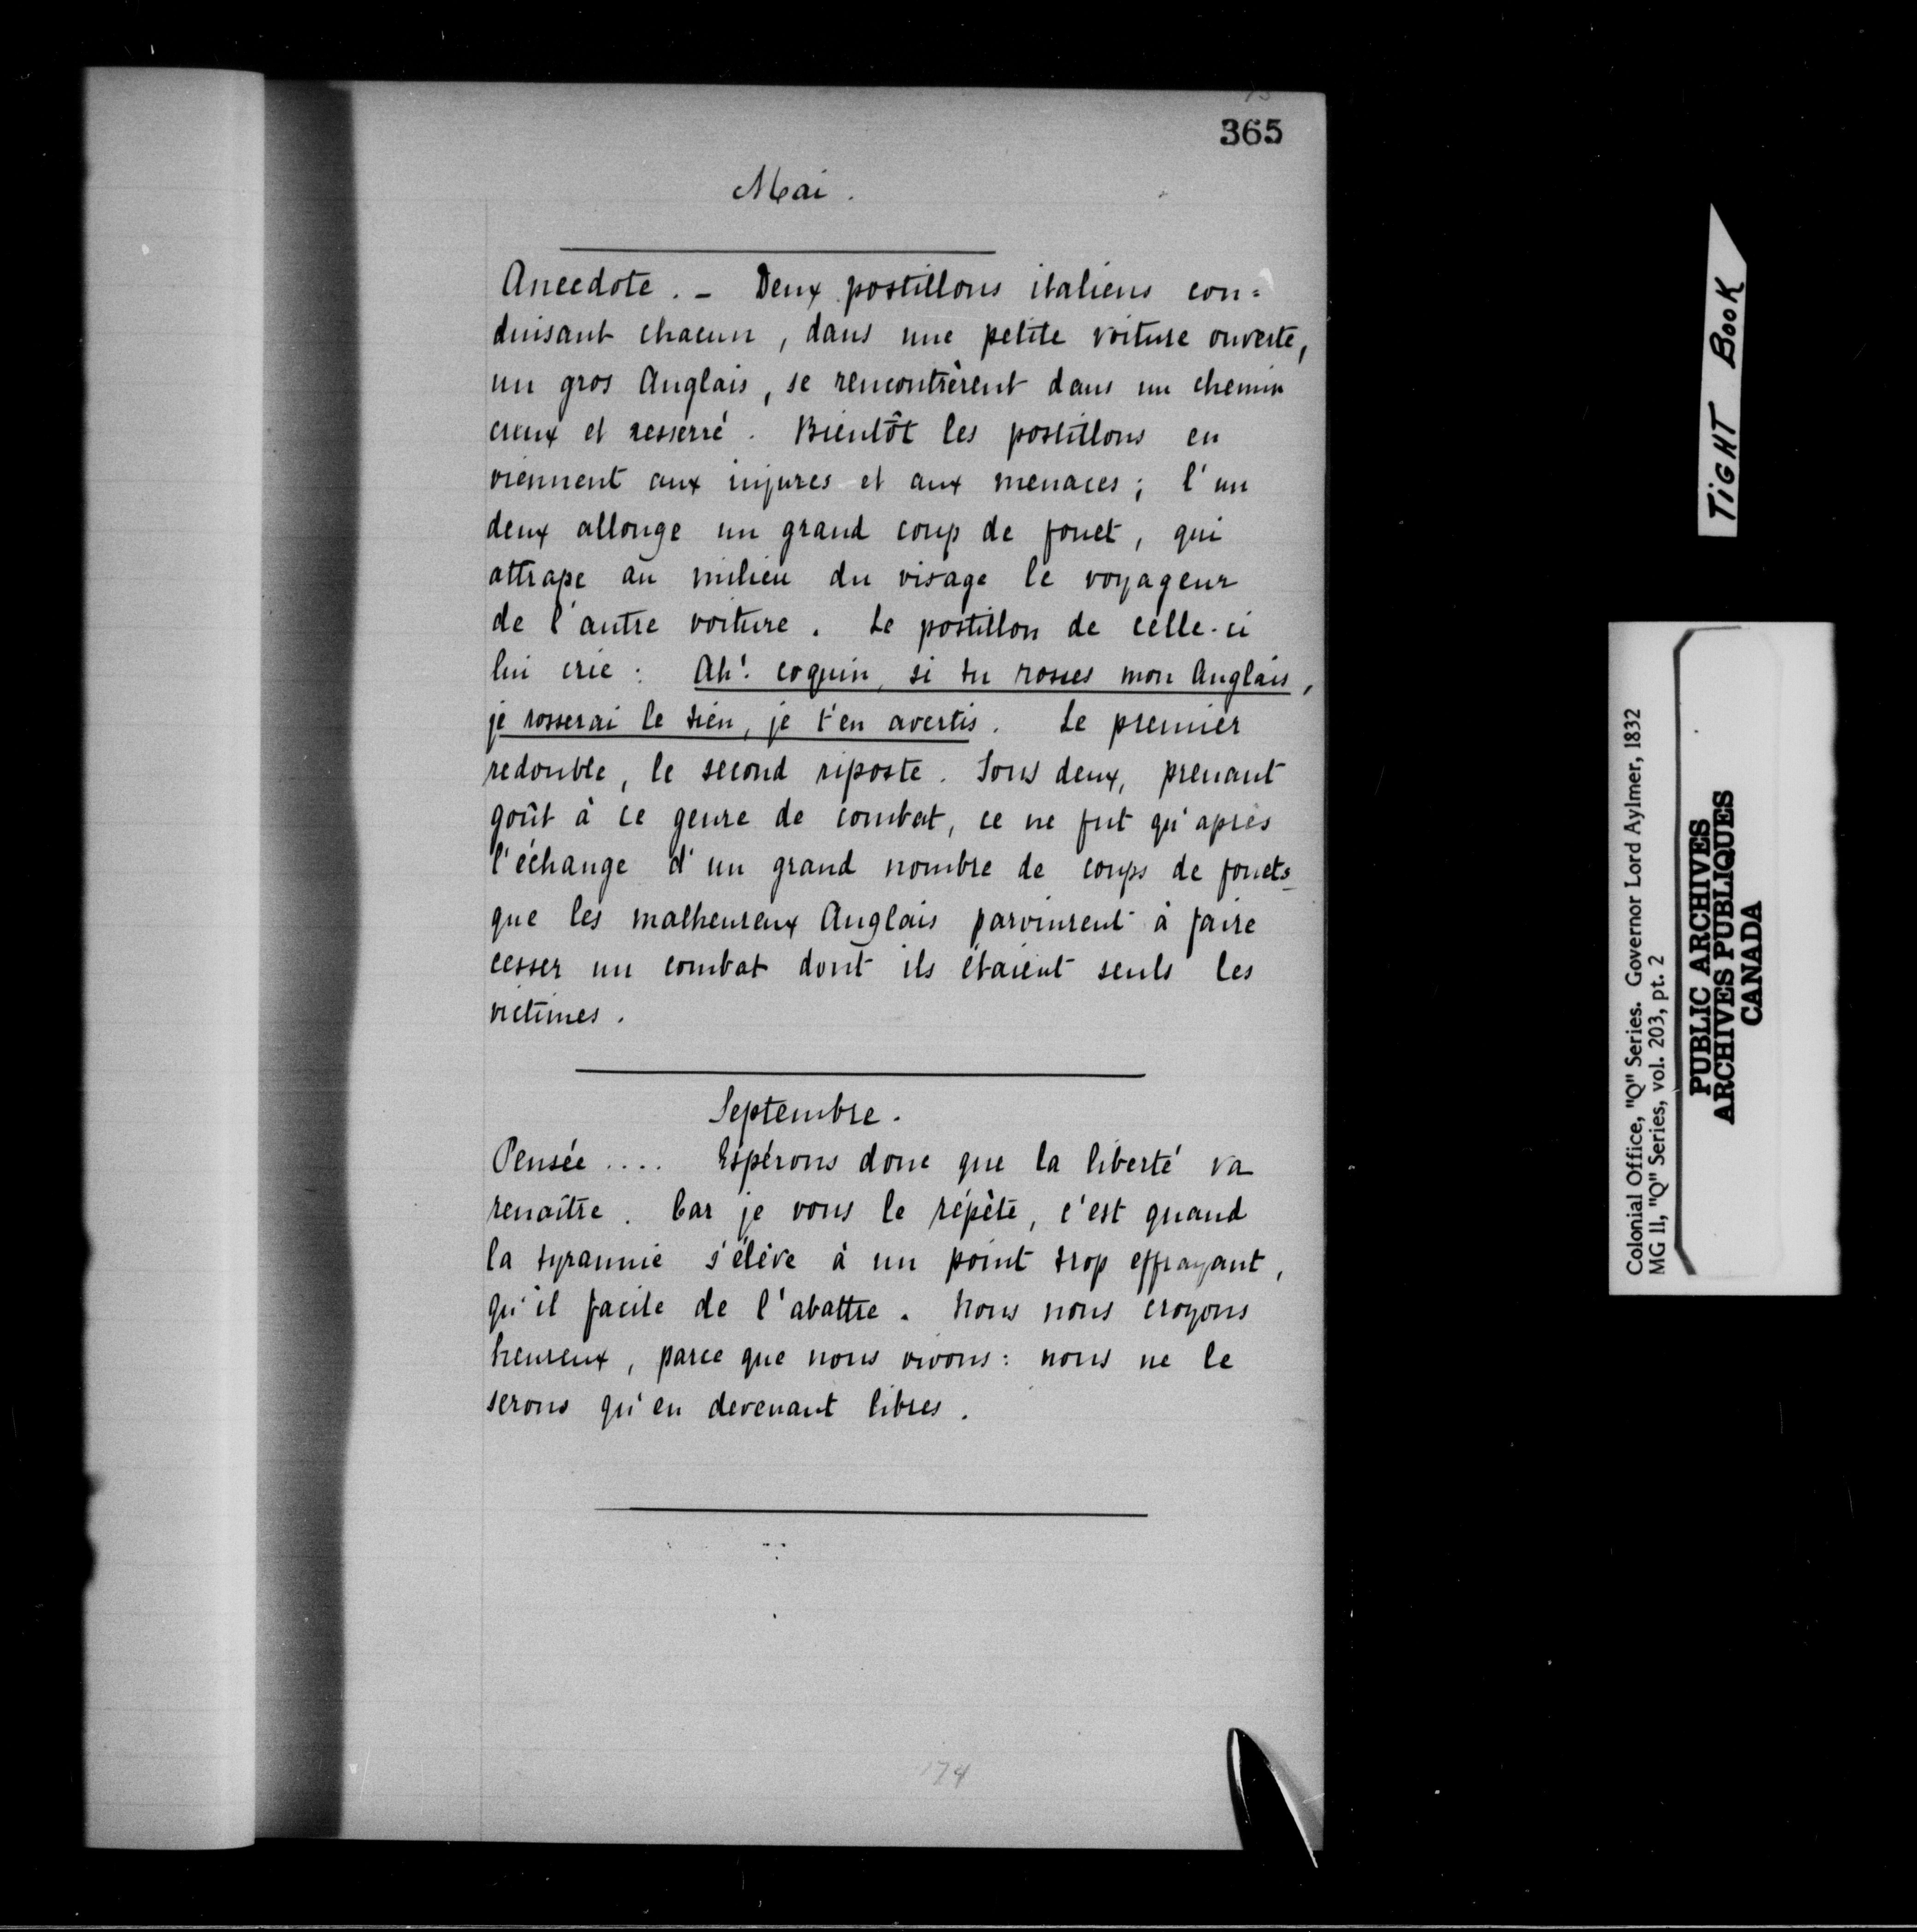 365
Mai.
Anecdote. - Deux postillons italiens con=
duisant chacun, dans une petite voiture ouverte,
un gros Anglais, se rencontrèrent dans un chemin
creux et resserré. Bientôt les postillons en
viennent aux injures et aux menaces; l'un
deux allonge un grand coup de fouet, qui
attrape au milieu du visage le voyageur
de l'autre voiture. Le postillon de celle-ci
lui crie: Ah! coquin, si tu rosses mon Anglais,
je rosserai le tien, je t'en avertis. Le premier
redouble, le second riposte. Tous deux, prenant
goût à ce genre de combat, ce ne fut qu'après
l'échange d'un grand nombre de coups de fouets
que les malheureux Anglais parvinrent à faire
cesser un combat dont ils étaient seuls les
victimes.
Septembre.
Pensée .... Espérons donc que la liberté va
renaître. Car je vous le répète, c'est quand
la tyrannie s'élève à un point trop effrayant,
qu'il facile de l'abattre. Nous nous croyons
heureux, parce que nous vivons: nous ne le
serons qu'en devenant libres.
174
TIGHT BOOK
Colonial Office, "Q" Series. Governor Lord Aylmer, 1832
MG 11, "Q" Series, vol. 203, pt. 2
PUBLIC ARCHIVES
ARCHIVES PUBLIQUES
CANADA